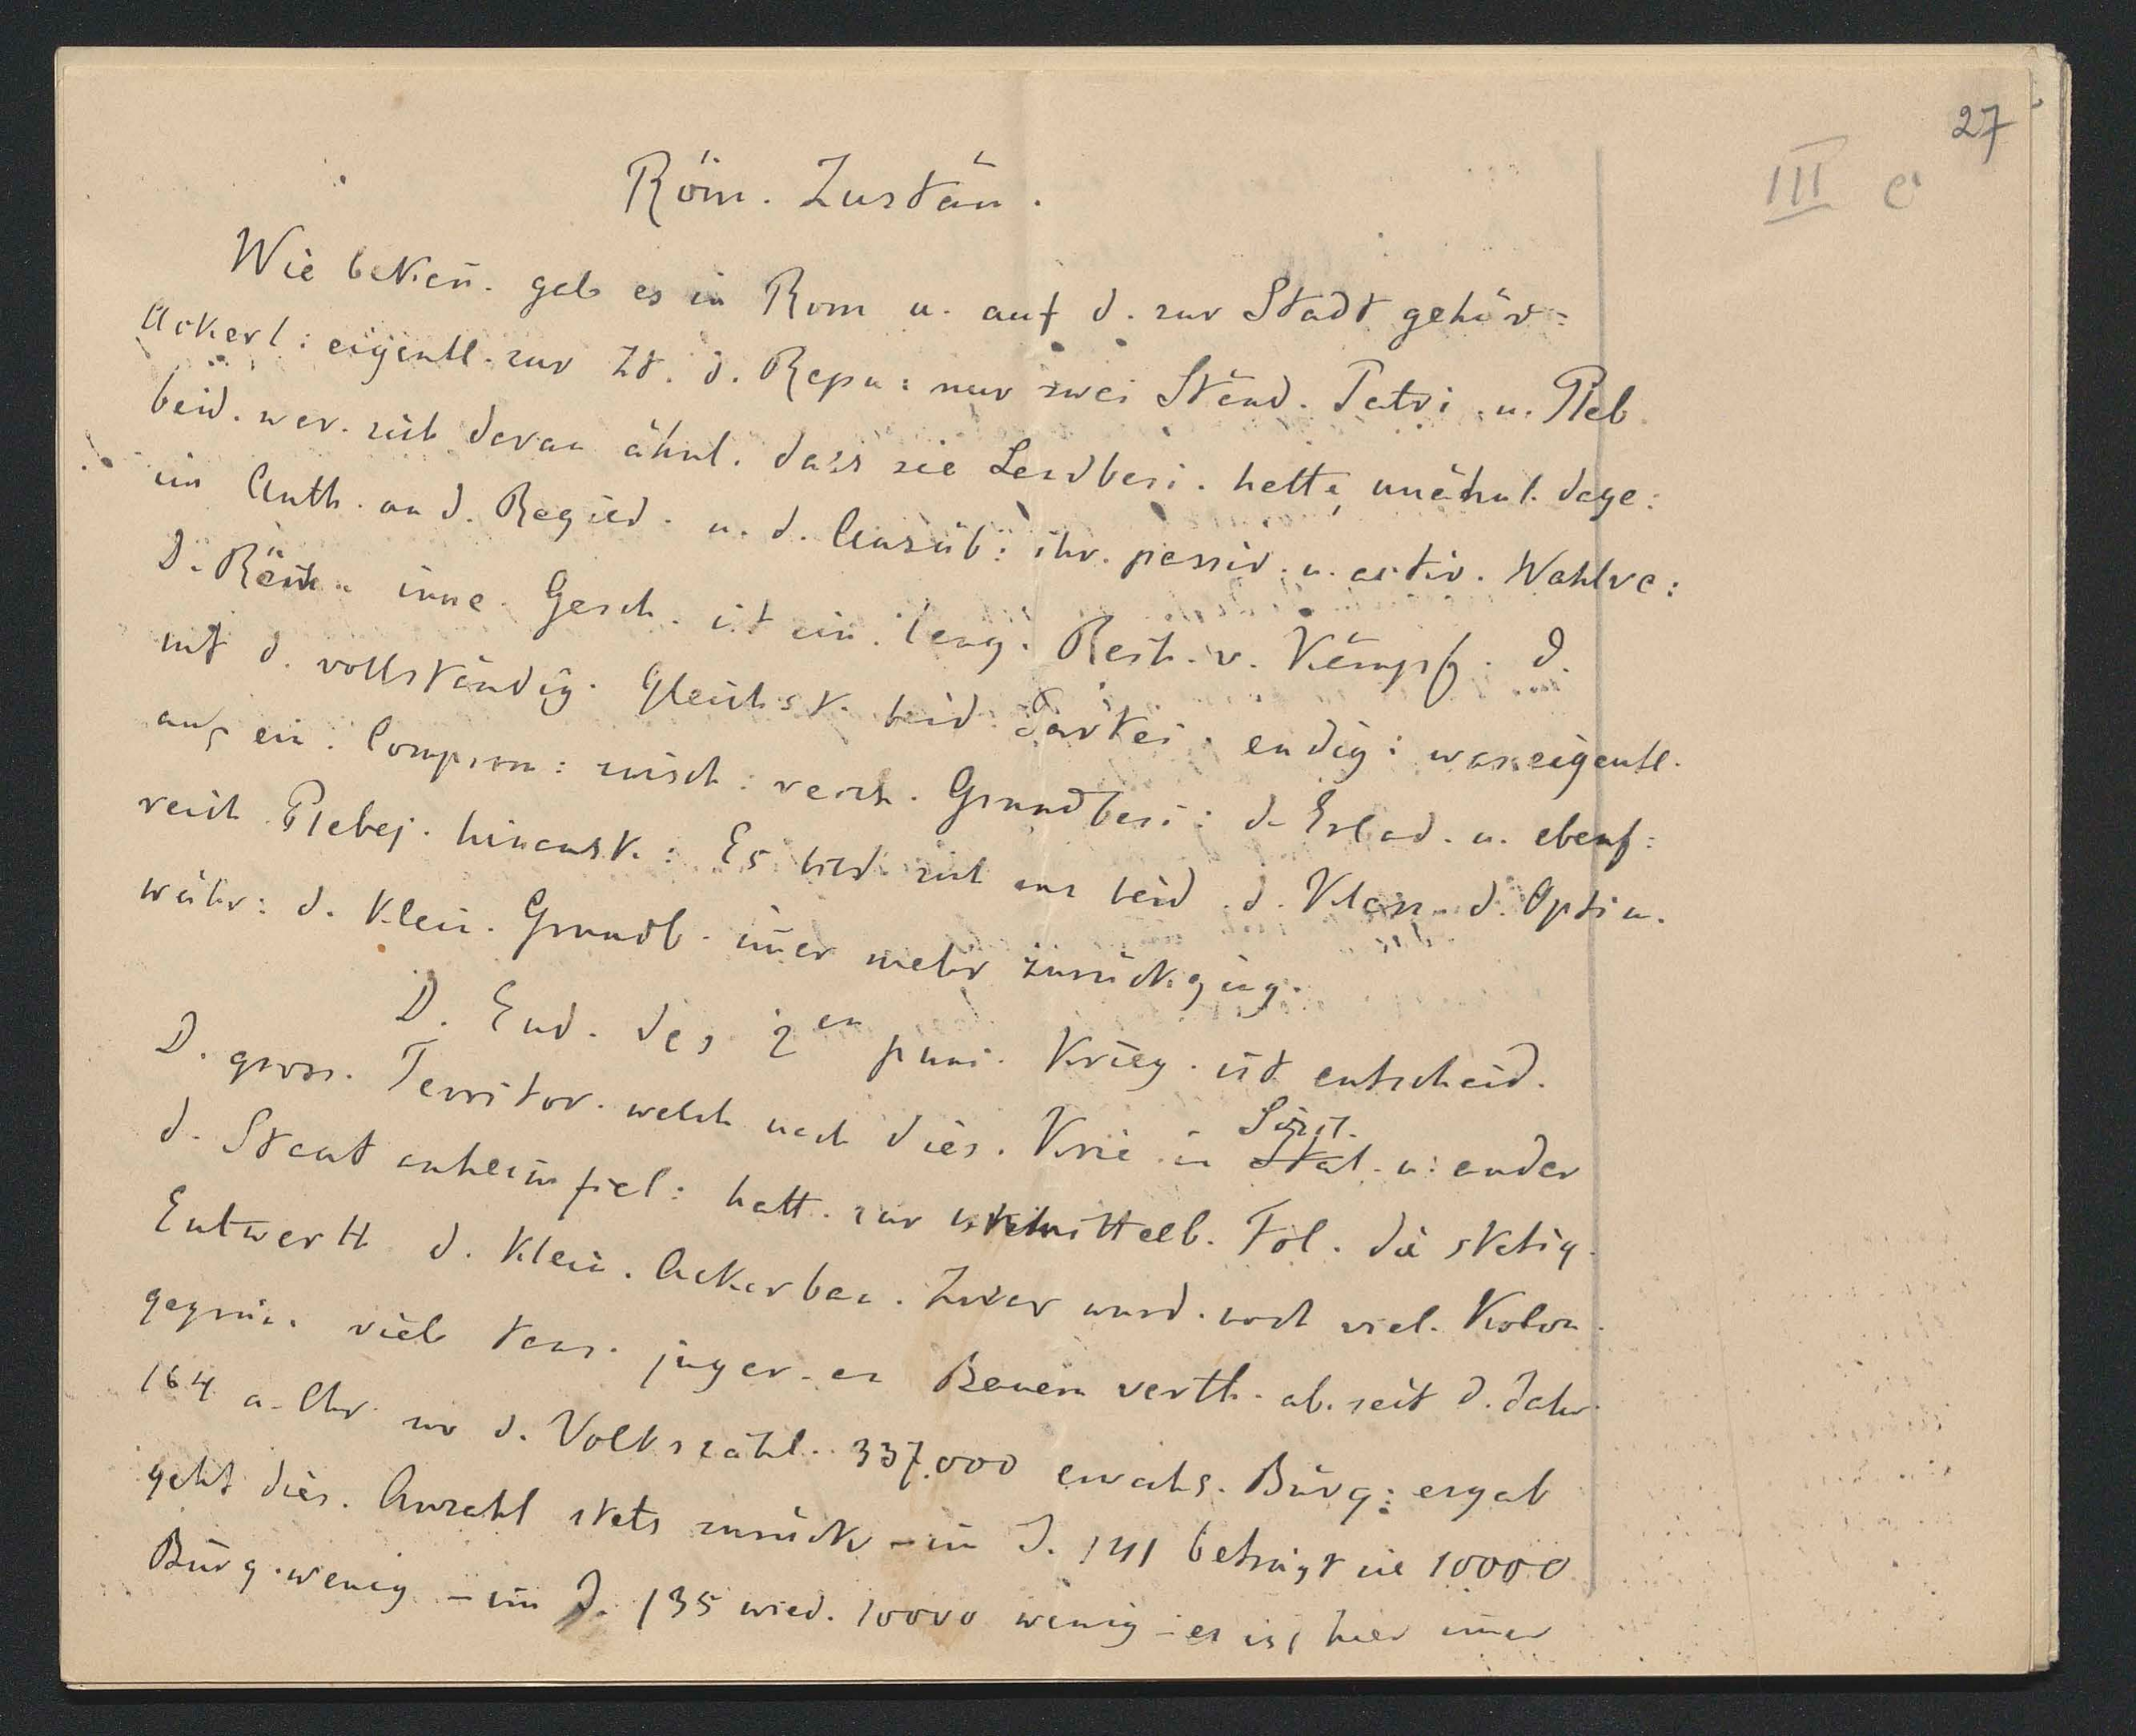 27
III c
Röm. Zustän.
Wie bekan̄. gab es in Rom u. auf d. zur Stadt gehör:
Ackerl: eigentl. zur Zt. d. Repu: nur zwei Ständ. Patri. u. Pleb
beid. war. sich daran ähnl. dass sie Landbesi. hatte, unähnl. dage:
im Anth. an d. Regied. u. d. Ausüb: ihr. passiv. u. activ. Wahlre:
D. Röm. inne. Gesch. ist ein. lang. Reih. v. Kämpf. d.
mit d. vollständig. Gleichst. beid. Partei. endig: was eigentl.
auf ein. Comprom: zwisch: reich. Grundbesi: d. Erlad. u. ebenf:
reich Plebej. hinausk.: Es bild. sich aus beid. d. Klass. d. Optim.
währ: d. klein. Grundb. im̄er mehr zurückging.
D. End. des 2en puni. Krieg. ist entscheid.
D. gross. Territor. welch nach dies. Krie. in Sizil. u: ander
d. Staat anheimfiel: hatt. zur unmittelb. Fol. die stetig.
Entwerth d. klein. Ackerbau. Zwar wurd. noch viel. Kolon.
gegrün. viel taus. juger. an Bauern verth. ab. seit d. Jahr
164 a. Chr. wo d. Volkszähl. 337.000 erwachs. Bürg: ergab
geht dies. Anzahl stets zurück – im J. 141 beträgt sie 10000
Bürg. wenig – im J. 135 wied. 10000 wenig – es ist hier im̄er